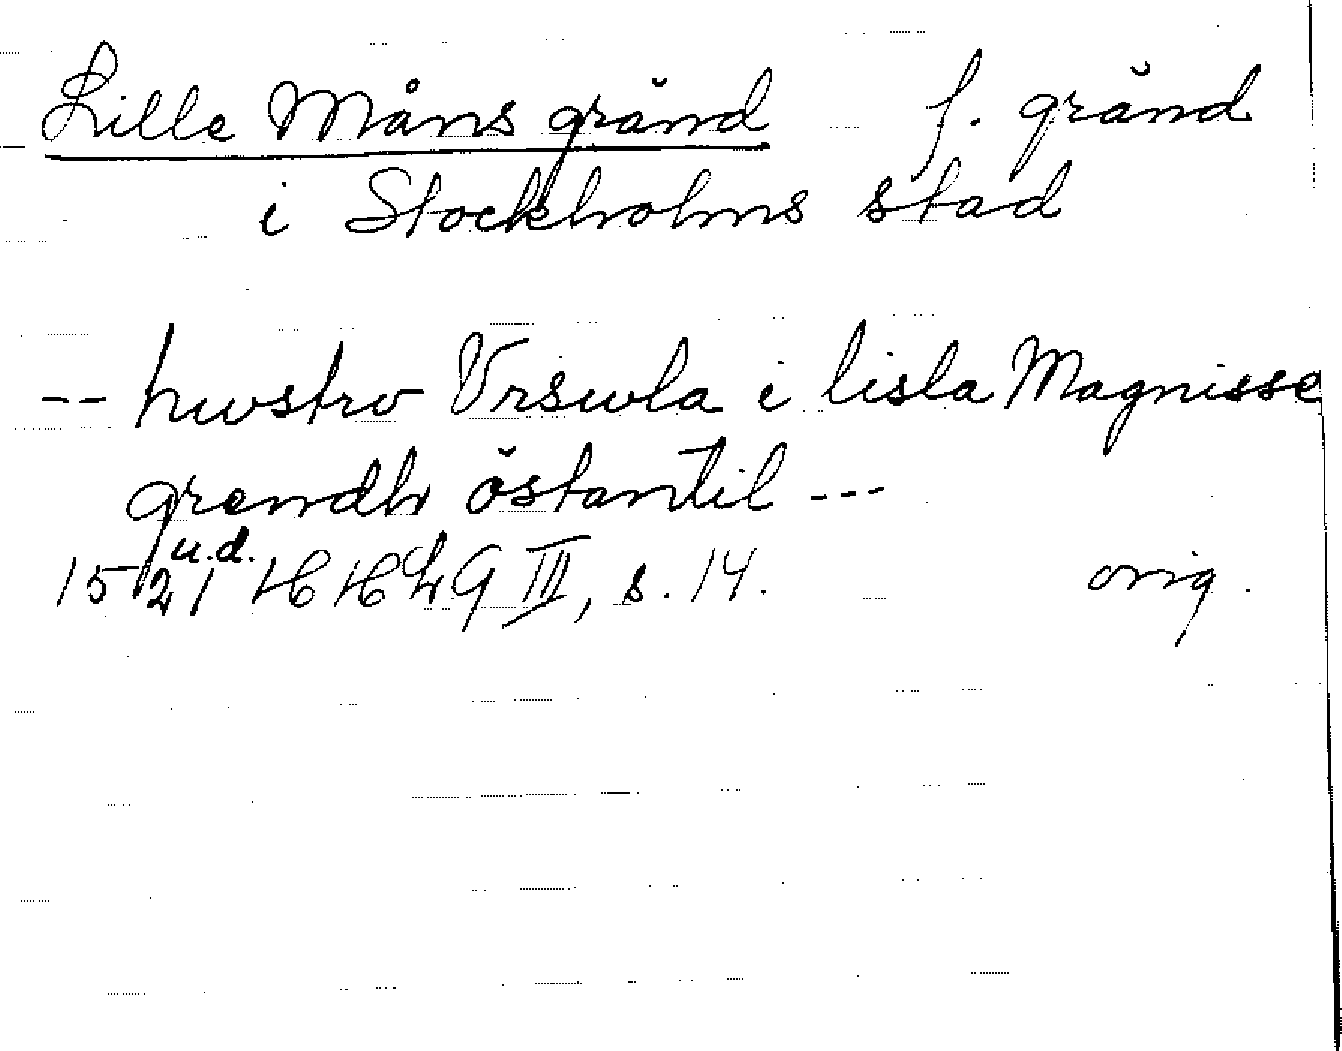 Lille Måns gränd f. gränd
i Stockholms stad
-- hwstrv Vrswla i lisla Magnisse
grendh östantil ---
1521 u.d. HHLG III, s. 14. orig.